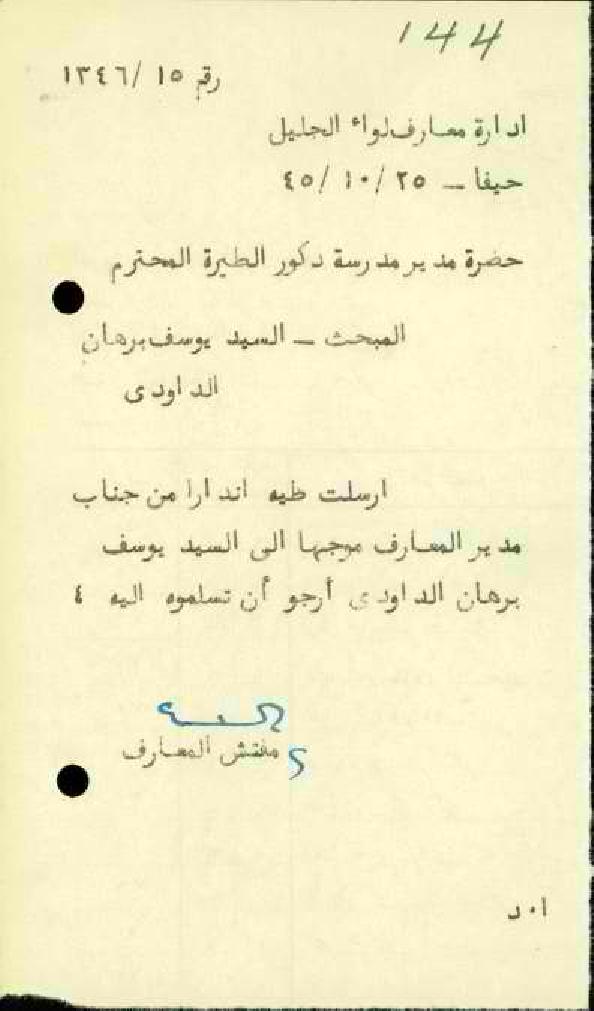 144
رقم ١٥ /١٣٤٦
ادارة معارف لواء الجليل
حيفا - ٢٥ /١٠ /٤٥
حضرة مدير مدرسة ذكور الطيرة المحترم
المبحث - السيد يوسف برهان
الداودى
ارسلت طيه انذارا من جناب
مدير المعارف موجها الى السيد يوسف
برهان الداودى أرجو أن تسلموه اليه ٤
مفتش المعارف
ا ٠ د